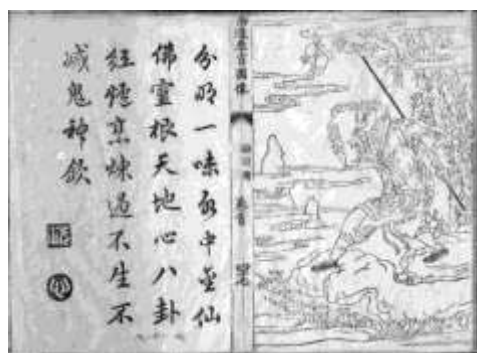 分明一味水中金仙
佛靈根天地心八卦
經爐烹煉過不生不
滅鬼神欽
卷首